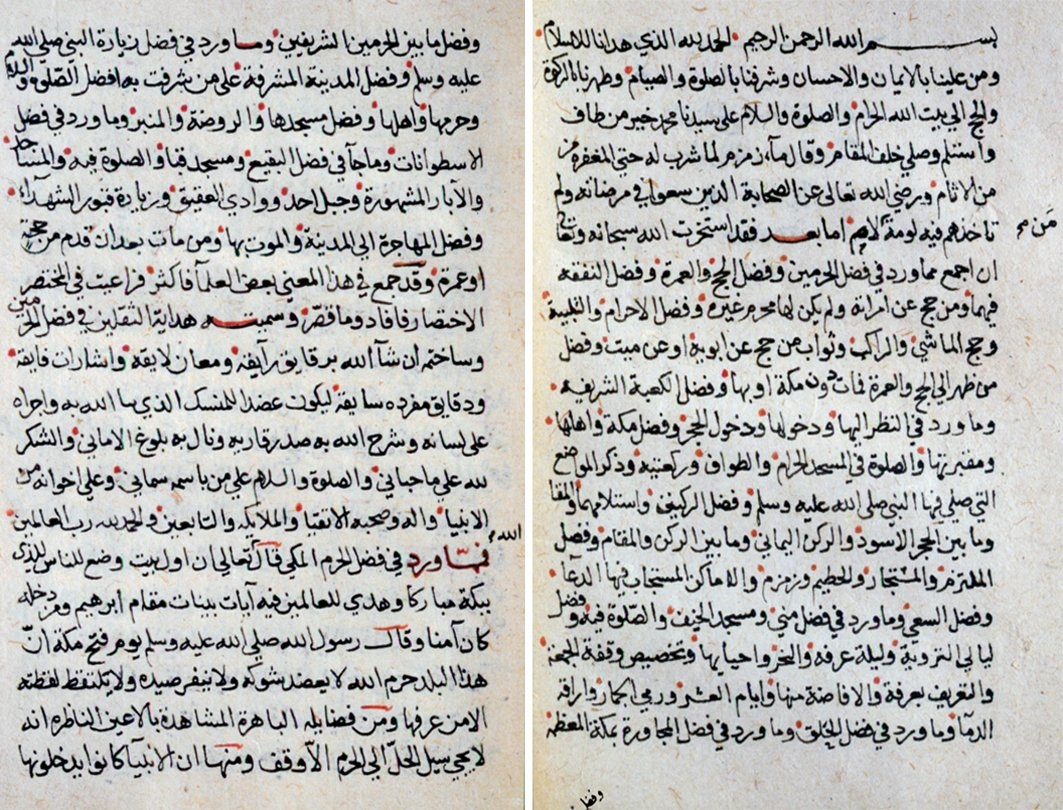 بسم الله الرحمن الرحيم الحمد لله الذي هدانا للاسلام
ومن علينا بالايمان والاحسان وشرفنا بالصلوة والصيام وطهرنا بالزكوة
والحج الى بيت الله الحرام والصلوة والسلام على سيدنا محمد خير من طاف
واستلم وصلي خلف المقام وقال ماء زمزم لما شرب له حتي المغفرة من
من الاثام ورضي الله تعالى عن الصحابة الذين سعوا في مرضاته ولم
تاخذهم فيه لومة لائم اما بعد فقد استخرت الله سبحانه وتعالى
ان اجمع مما ورد في فضل الحرمين وفضل الحج والعمرة وفضل النفقة
فيهما ومن حج عن امراة ولم يكن لها محرم غيره وفضل الاحرام والتلبية
وحج الماشي والراكب وثواب من حج عن ابويه او عن ميت وفضل
من ظهر الي الحج والعمرة فمات دون مكة او بها وفضل الكعبة الشريفه
وما ورد في النظر اليها ودخولها ودخول الحجر وفضل مكة واهلها
ومقبرتها والصلوة في المسجد الحرام والطواف وركعتيه وذكر المواضع
التي صلي فيها النبي صلي الله عليه وسلم وفضل الركنين واستلامهما والمقام
وما بين الحجر الاسود والركن اليماني وما بين الركن والمقام وفضل
الملتزم والمستجار والحطيم وزمزم والاماكن المستجاب فيها الدعا
وفضل السعي وما ورد في فضل مني ومسجد الخيف والصلوة فيه وفضل
ليالي التروية وليلة عرفه والنحر واحيايها وتخصيص وقفة الجمعة
والتعريف بعرفة والافاضة منها وايام العشر ورمي الجمار واراقه
الدما وما ورد في فضل الحلق وما ورد في فضل المجاورة بمكة المعظمة
وفضل
وفضل ما بين الحرمين الشريفين وما ورد في فضل زيارة النبي صلي الله
عليه وسلم وفضل المدينة المشرفة على من شرفت به افضل الصلوة والسلام
وحرمها واهلها وفضل مسجدها والروضة والمنبر وما ورد في فضل
الاسطوانات وما جآ في فضل البقيع ومسجد قبا والصلوة فيه والمساجد
والآبار المشهورة وجبل احد ووادي العقيق وزيادة قبور الشهداء
وفضل المهاجرة الي المدينة والموت بها ومن مات بعد ان قدم من حجة
او عمرة وقد جمع في هذا المعني بعض العلمآ فاكثر فراعيت في المختصر
الاختصار فافاد وما قصر وسميته هداية الثقلين في فضل الحرمين
وساختم ان شآ الله برقايق رآيقة ومعان لايقه واشارات فايقة
ودقايق مفرده سابقة ليكون عضدا للمنسك الذي منّ الله به واجراه
علي لسانه وشرح الله به صدر قاريه ونال به بلوغ الاماني والشكر
لله علي ما حباني والصلوة والسلام علي من باسمه سماني وعلي اخوانه من
الانبيا واله وصحبه الاتقيا والملايكه والتابعين والحمد لله رب العالمين
فمما ورد في فضل الحرم المكي قال الله تعالي ان اول بيت وضع للناس للذي
ببكة مباركا وهدي للعالمين فيه آيات بينات مقام ابرهيم ومن دخله
كان آمنا وقال رسول الله صلي الله عليه وسلم يوم فتح مكة انّ
هذا البلد حرم الله لا يعضد شوكه ولا ينفر صيده ولا يلتقط لقطته
الا من عرفها ومن فضايله الباهرة المشاهدة بالاعين الناظره انه
لا يجي سيل الحل الي الحرم الا وقف ومنها ان الانبيآ كانوا يدخلونها